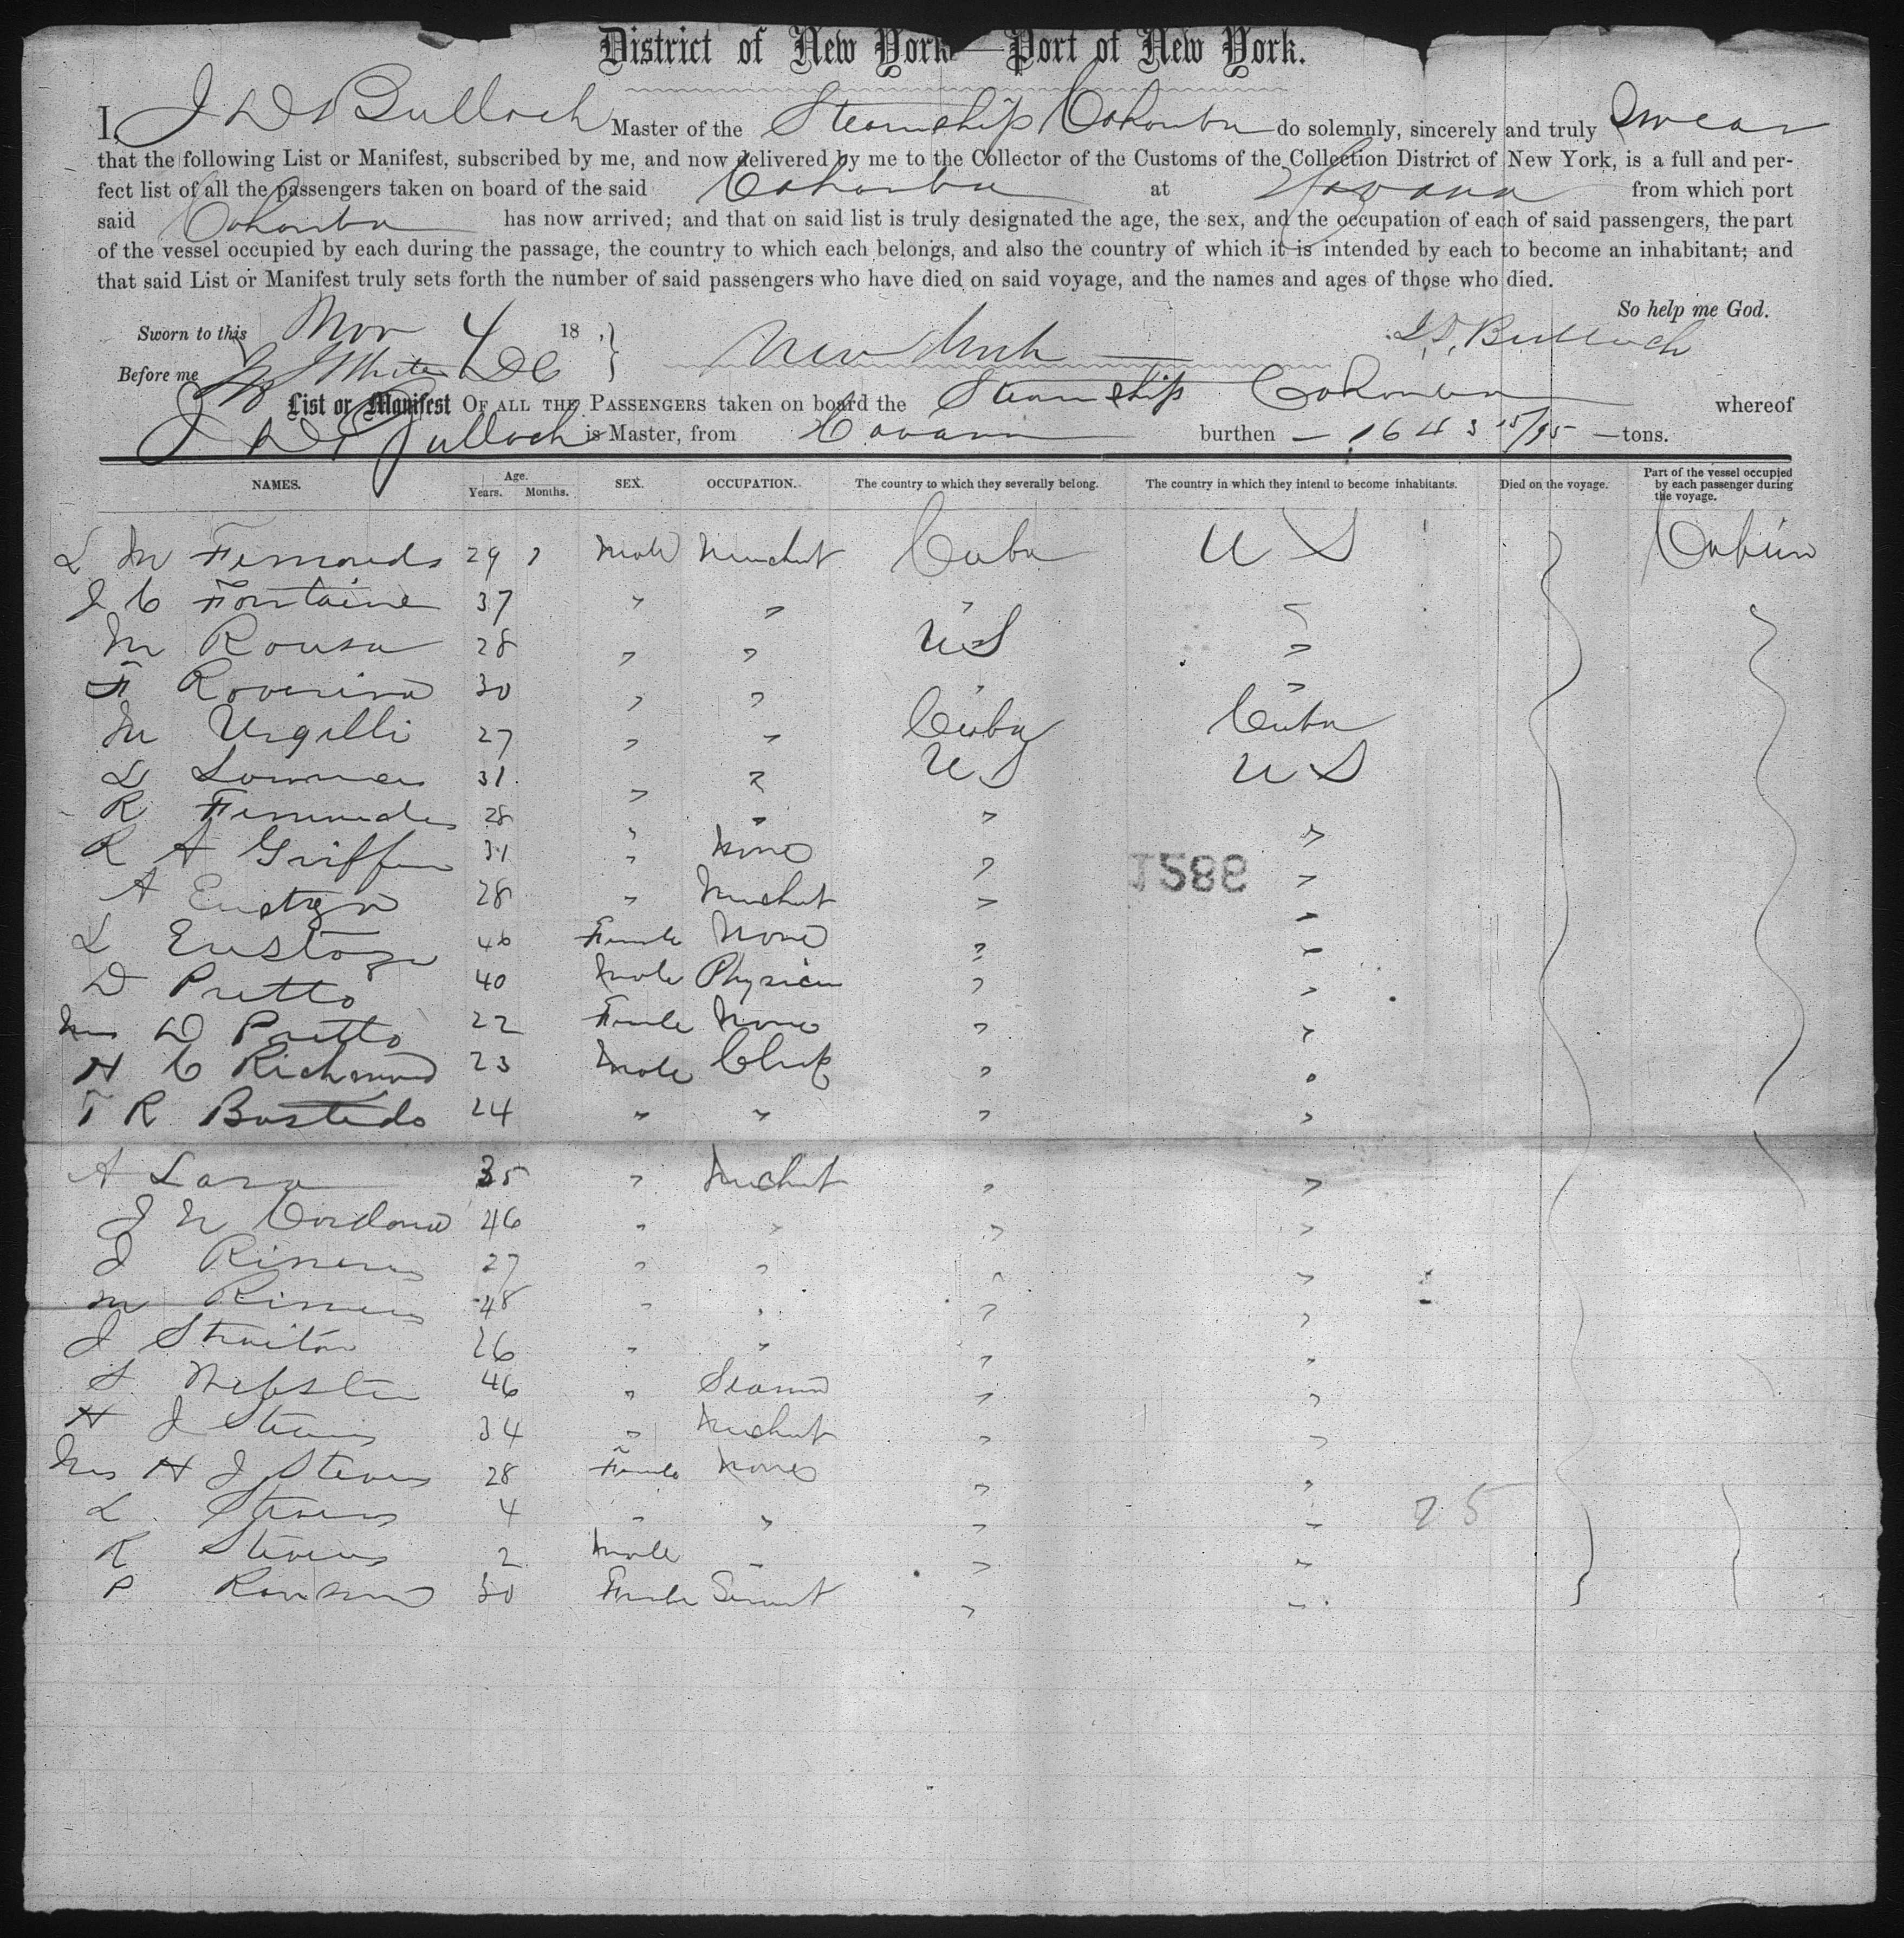 District of New York—Port of New York.
I, J D Bulloch Master of the Steamship Cahawba do solemnly, sincerely and truly Swear
that the following List or Manifest, subscribed by me, and now delivered by me to the Collector of the Customs of the Collection District of New York, is a full and per-
fect list of all the passengers taken on board of the said Cahawba at Havana from which port
said Cahawba has now arrived; and that on said list is truly designated the age, the sex, and the occupation of each of said passengers, the part
of the vessel occupied by each during the passage, the country to which each belongs, and also the country of which it is intended by each to become an inhabitant; and
that said List or Manifest truly sets forth the number of said passengers who have died on said voyage, and the names and ages of those who died.
So help me God.
Sworn to this Nov 4 18
New York J. D. Bulloch
Before me White
List or Manifest OF ALL THE PASSENGERS taken on board the Steamship Cahawba whereof
J D Bulloch is Master, from Havana burthen 1643 15/95 tons.
NAMES. Age. Years. Months. SEX. OCCUPATION. The country to which they severally belong. The country in which they intend to become inhabitants. Died on the voyage. Part of the vessel occupied by each passenger during the voyage.
L M 29 Male Merchant Cuba U S Cabin
J C Fontaine 37 " " " "
M 28 " " U S "
F 30 " " " "
M Urgilli 27 " " Cuba Cuba
31 " " U S U S
R 28 " " " "
R A Griffin 31 " None " "
A 28 " Merchant " "
1588
L 46 Female None " "
D Pretto 40 Male Physician " "
Mrs D Pretto 22 Female None " "
H C Richmond 23 Male Clerk " "
T R Bostedo 24 " " " "
A Lara 35 " Merchant " "
J N Cordova 46 " " " "
J 27 " " " "
M 48 " " " "
J Straiton 26 " " " "
S Webster 46 " Seaman " "
H J Stevens 34 " Merchant " "
Mrs H J Stevens 28 Female None " "
L Stevens 4 " " " " 25
R Stevens 2 Male " " "
P 30 Female Servant " "